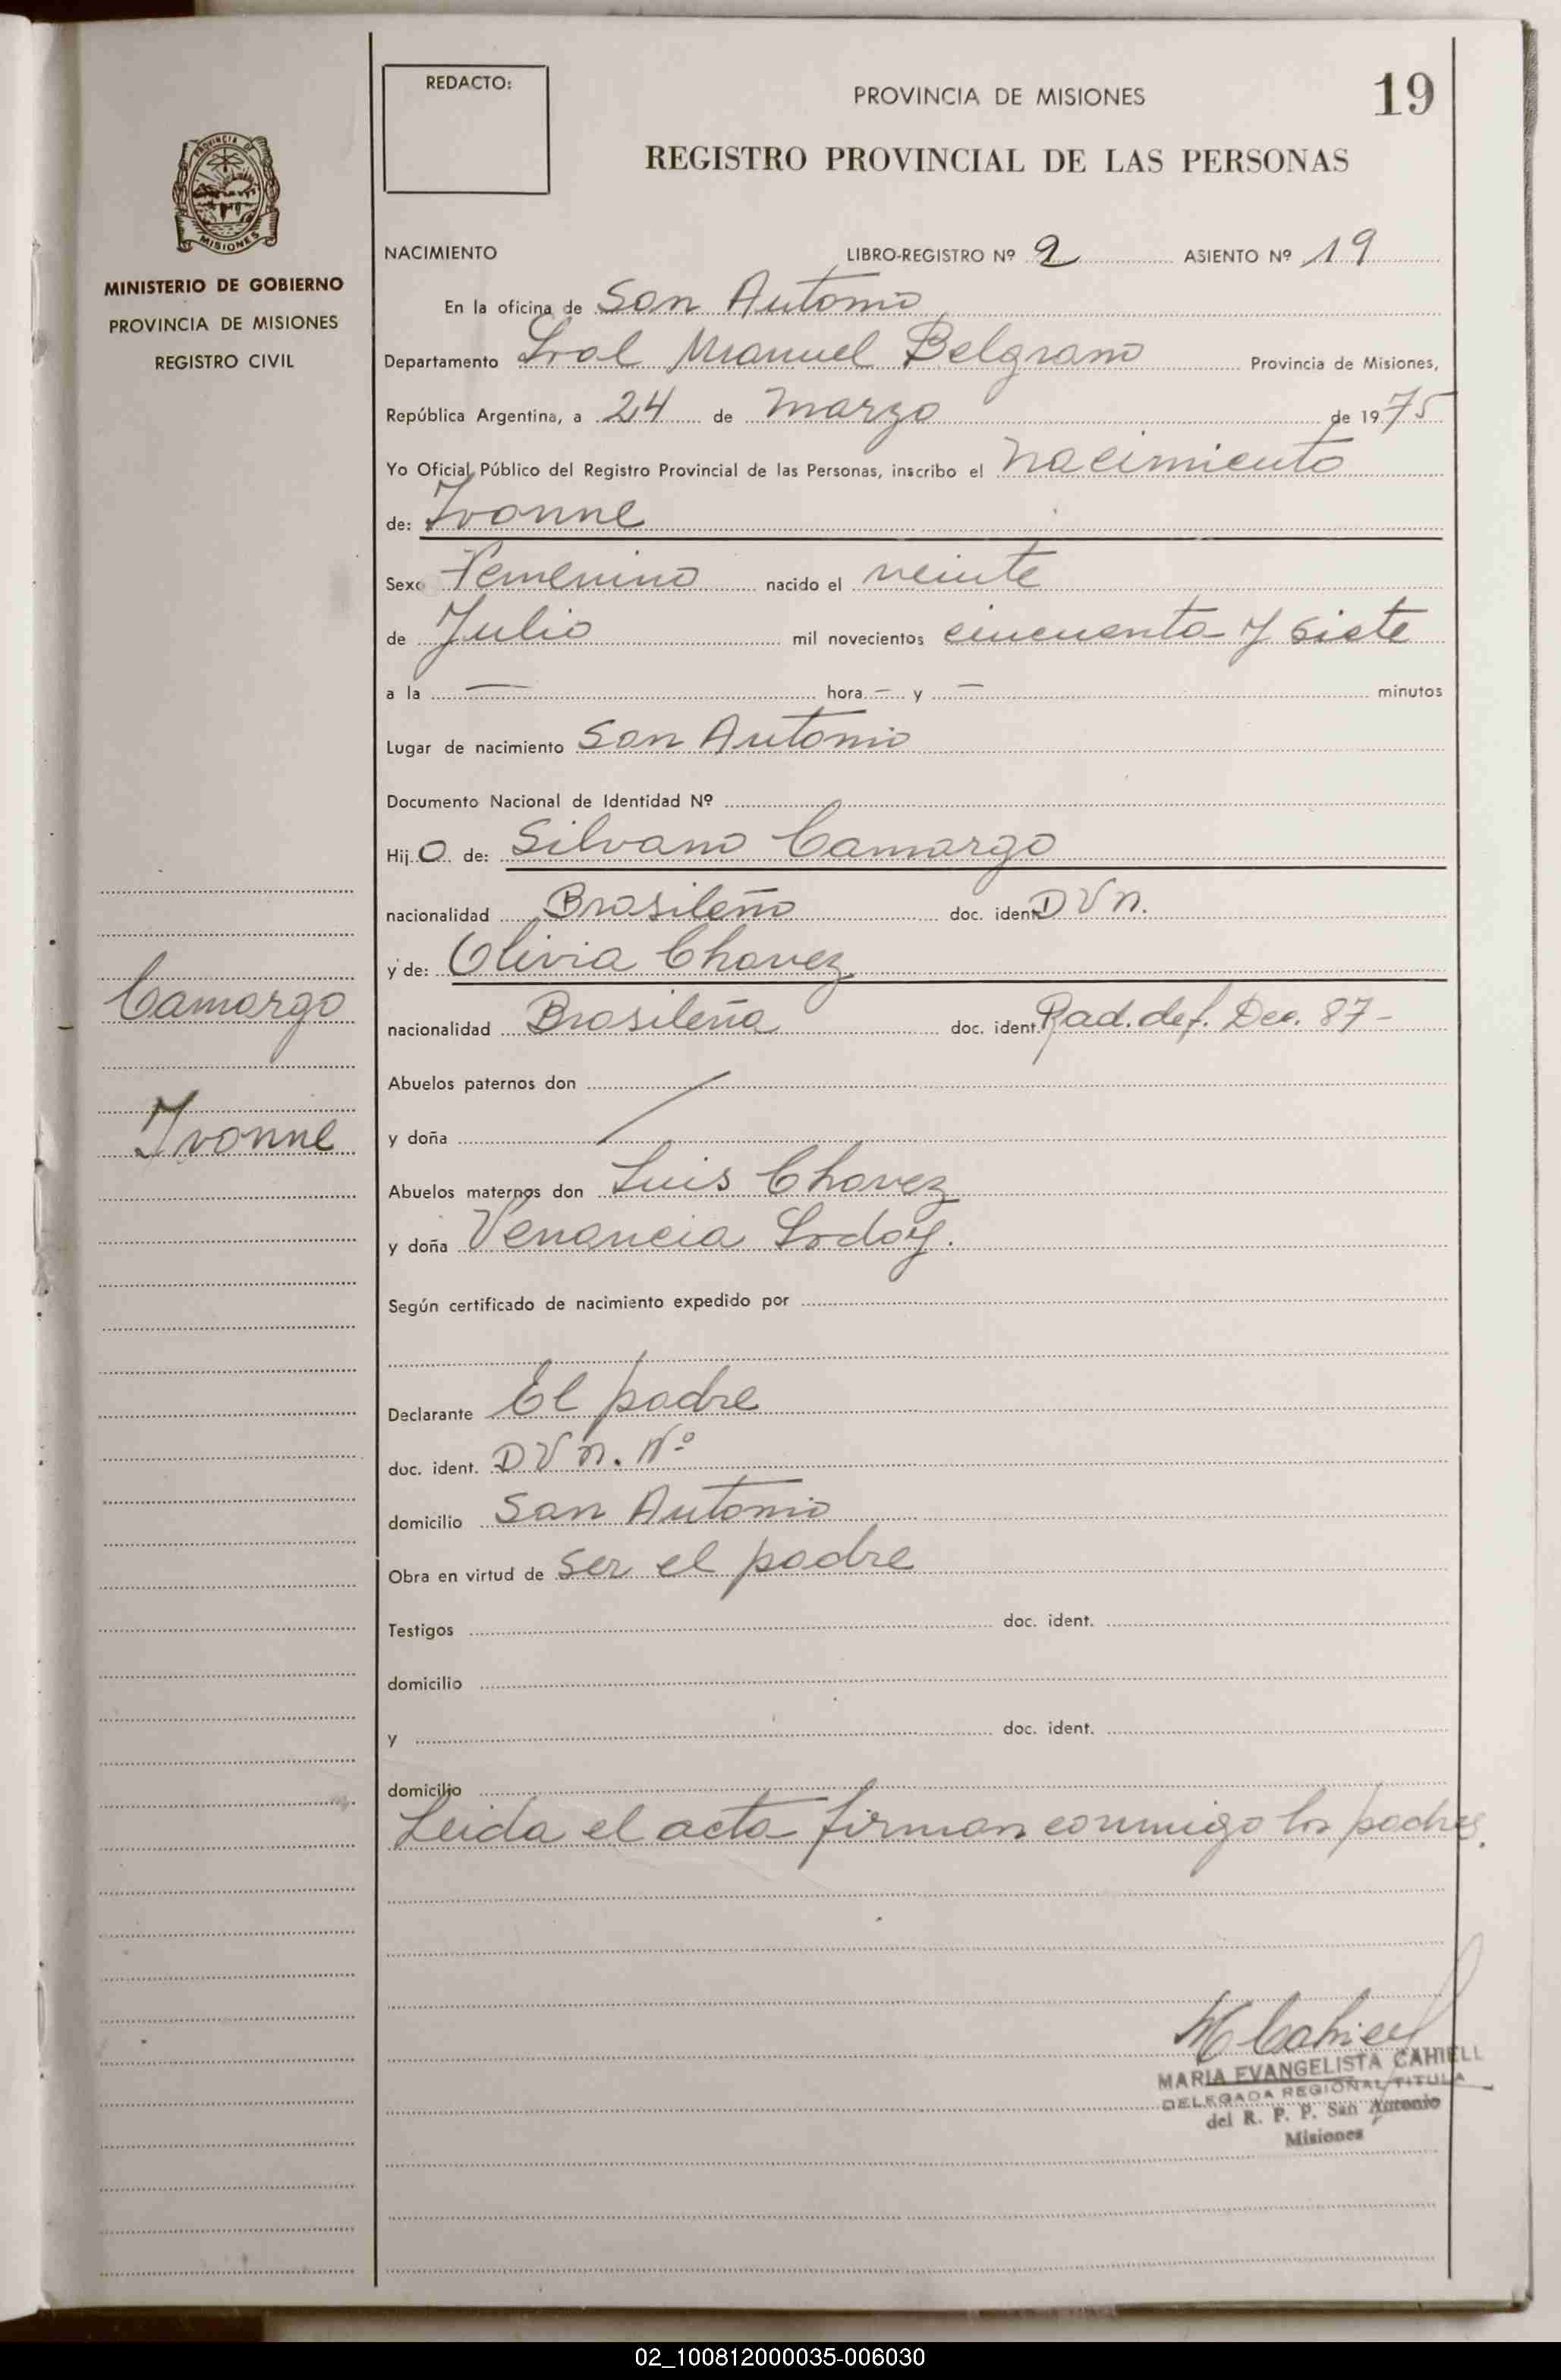 REDACTO:
PROVINCIA DE MISIONES
19
REGISTRO PROVINCIAL DE LAS PERSONAS
PROVINCIA DE
MISIONES
MINISTERIO DE GOBIERNO
PROVINCIA DE MISIONES
REGISTRO CIVIL
NACIMIENTO LIBRO-REGISTRO Nº 2 ASIENTO Nº 19
En la oficina de San Antonio
Departamento Gral Manuel Belgrano Provincia de Misiones,
República Argentina, a 24 de Marzo de 1975
Yo Oficial Público del Registro Provincial de las Personas, inscribo el nacimiento
de: Ivonne
Sexo Femenino nacido el veinte
de Julio mil novecientos cincuenta y siete
a la — hora — y — minutos
Lugar de nacimiento San Antonio
Documento Nacional de Identidad Nº
Hij o de: Silvano Camargo
nacionalidad Brasileño doc. ident. D V N.
y de: Olivia Chavez
nacionalidad Brasileña doc. ident. Rad. def. Dec. 87-
Camargo
Ivonne
Abuelos paternos don
y doña
Abuelos maternos don Luis Chavez
y doña Venancia Godoy.
Según certificado de nacimiento expedido por
Declarante El padre
doc. ident. D V N. Nº
domicilio San Antonio
Obra en virtud de ser el padre
Testigos doc. ident.
domicilio
y doc. ident.
domicilio
Leida el acta firman conmigo los padres.
M Cahiell
MARIA EVANGELISTA CAHIELL
DELEGADA REGIONAL TITULA
del R. P. P. San Antonio
Misiones
02_100812000035-006030